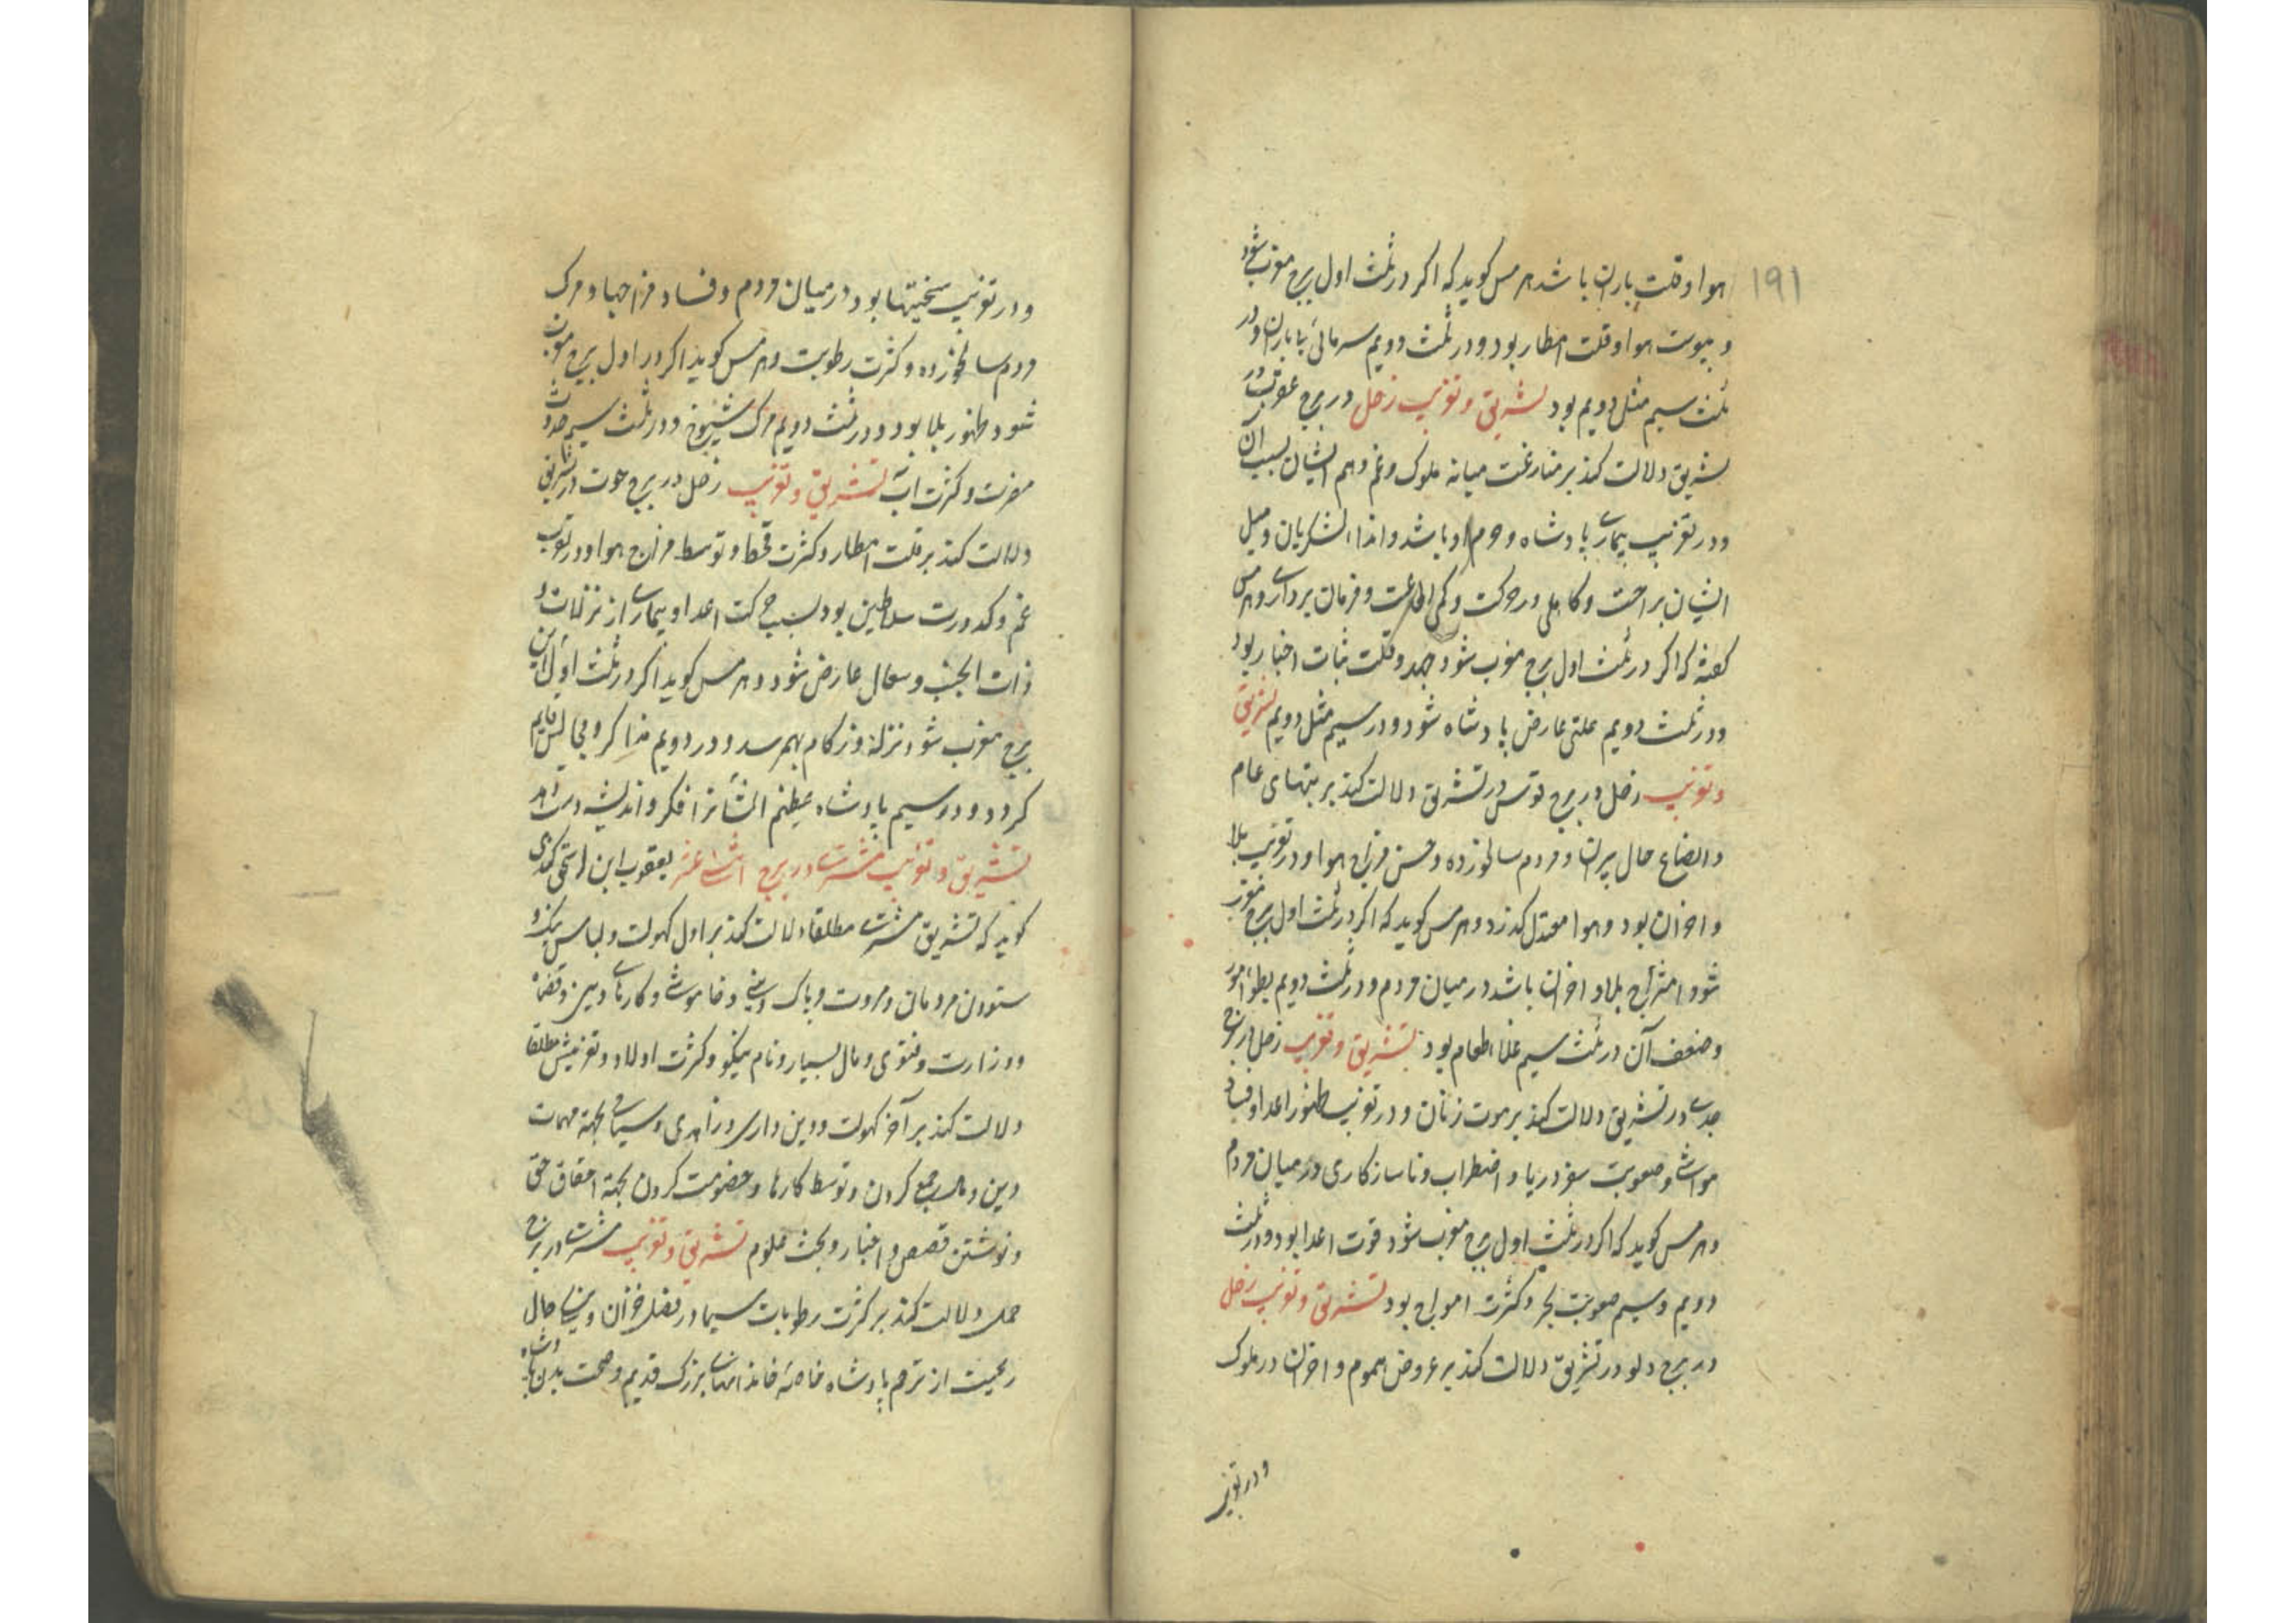 ۱۹۱
هوا و قلت باران باشد هرمس کوید که اکر در ثلث اول برج مغرب شود
و یبوست هوا و قلت امطار بود و در ثلث دویم سرمای با باران و در
ثلث سیم مثل دویم بود تشریق و تغریب زحل در برج عقرب در
تشریق دلالت کند بر منازعت میانه ملوک و غم و هم ایشان بسبب آن
و در تغریب بیماری پادشاه و حرم او باشد و ایذاء لشکریان و میل
ایشان براحت و کاهلی در حرکت و کمی اطاعت و فرمان برداری و هرمس
کفته که اکر در ثلث اول برج مغرب شود و قلت ثبات اخبار بود
و در ثلث دویم علتی عارض پادشاه شود و در سیم مثل دویم تشریق
و تغریب زحل در برج قوس در تشریق دلالت کند بر تبهای عام
و اتضاع حال پیران و مردم سالخورده و حسن مزاج هوا و در تغریب بلا
و احزان بود و هوا معتدل کذرد و هرمس کوید که اکر در ثلث اول برج مغرب
شود امتزاج بلا و احزان باشد در میان مردم و در ثلث دویم بطوء امور
و ضعف آن در ثلث سیم غلاء طعام بود تشریق و تغریب زحل در برج
جدی در تشریق دلالت کند بر موت زنان و در تغریب ظهور اعدا و فساد
مواشی و صعوبت سفر دریا و اضطراب و ناسازکاری در میان مردم
و هرمس کوید که اکر در ثلث اول برج مغرب شود قوت اعدا بود و در ثلث
دویم و سیم صعوبت بحر و کثرت امواج بود تشریق و تغریب زحل
در برج دلو در تشریق دلالت کند بر عروض هموم و احزان در ملوک
و در تغریب
و در تغریب سختیها بود در میان مردم و فساد مزاجها و مرک
مردم سالخورده و کثرت رطوبت و هرمس کوید اکر در اول برج مغرب
شود ظهور بلا بود و در ثلث دویم مرک شیوخ و در ثلث سیم حدوث
مضرت و کثرت آب تشریق و تغریب زحل در برج حوت در تشریق
دلالت کند بر قلت امطار و کثرت قحط و توسط مزاج هوا و در تغریب
غم و کدورت سلاطین بود بسبب حرکت اعدا و بیماری از نزلات و
ذات الجنب و سعال عارض شود و هرمس کوید اکر در ثلث اول این
برج مغرب شود نزله و زکام بهم رسد و در دویم مذاکر و مجالس قایم
کردد و در سیم پادشاه عظیم الشأن را فکر و اندیشه دست دهد
تشریق و تغریب مشتری در برج اثنا عشر یعقوب ابن اسحق کندی
کوید که تشریق مشتری مطلقا دلالت کند بر اول کهولت و لباس نیکو و
ستودن مردمان و مروت و پاک دینی و خاموشی و کارهای دین و قضا
و وزارت و فتوی و مال بسیار و نام نیکو و کثرت اولاد و تغریبش مطلقا
دلالت کند بر آخر کهولت و دین داری و زاهدی و سیاحی بجهة مهمات
دین و مال جمع کردن و توسط کارها و خصومت کردن بجهة احقاق حق
و نوشتن قصص و اخبار و بحث علوم تشریق و تغریب مشتری در برج
حمل دلالت کند بر کثرت رطوبات سیما در فصل خزان و نیکی حال
رعیت از ترحم پادشاه خاصه خاندانهای بزرک قدیم و صحت بدن پادشاه